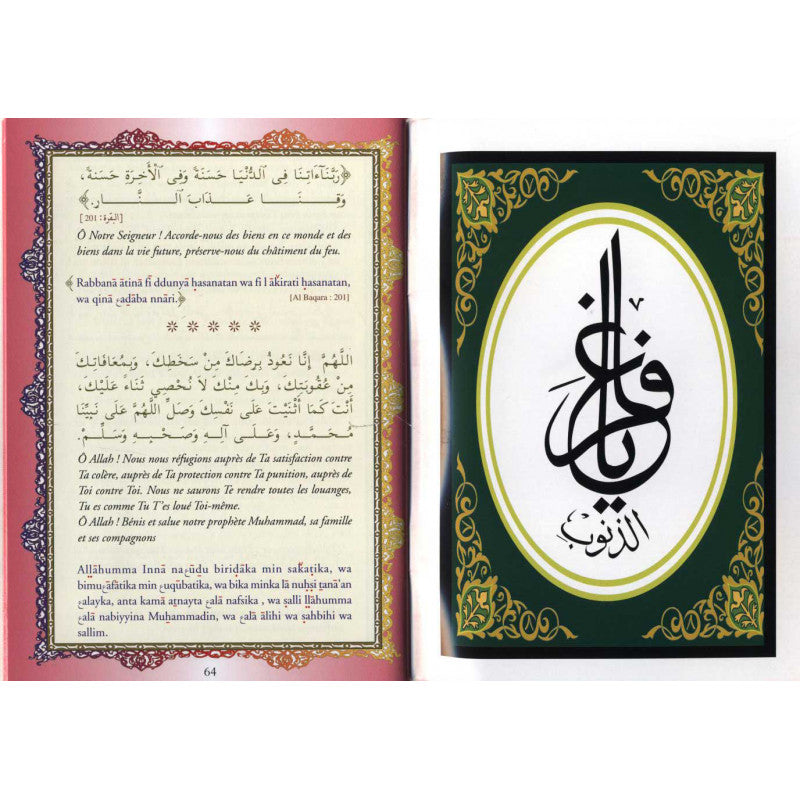 ﴿رَبَّنَآ ءَاتِنَا فِى ٱلدُّنْيَا حَسَنَةً وَفِى ٱلْأَخِرَةِ حَسَنَةً،
وَقِنَا عَذَابَ النَّارِ.﴾
[البقرة : 201]
Ô Notre Seigneur ! Accorde-nous des biens en ce monde et des
biens dans la vie future, préserve-nous du châtiment du feu.
﴿Rabbanā ātinā fī ddunyā ḥasanatan wa fi l āḵirati ḥasanatan,
wa qinā عaḏāba nnāri.﴾
[Al Baqara : 201]
اللَّهُمَّ إِنَّا نَعُوذُ بِرِضَاكَ مِنْ سَخَطِكَ، وَبِمُعَافَاتِكَ
مِنْ عُقُوبَتِكَ، وَبِكَ مِنْكَ لَا نُحْصِي ثَنَاءً عَلَيْكَ،
أَنْتَ كَمَا أَثْنَيْتَ عَلَى نَفْسِكَ وَصَلِّ اللَّهُمَّ عَلَى نَبِيِّنَا
مُحَمَّدٍ، وَعَلَى آلِهِ وَصَحْبِهِ وَسَلِّمْ.
Ô Allah ! Nous nous réfugions auprès de Ta satisfaction contre
Ta colère, auprès de Ta protection contre Ta punition, auprès de
Toi contre Toi. Nous ne saurons Te rendre toutes les louanges,
Tu es comme Tu T'es loué Toi-même.
Ô Allah ! Bénis et salue notre prophète Muhammad, sa famille
et ses compagnons
Allāhumma Innā naعūḏu biriḍāka min saḵaṭika, wa
bimuعāfātika min عuqūbatika, wa bika minka lā nuḥṣi ṯanā'an
عalayka, anta kamā aṯnayta عalā nafsika , wa ṣalli llāhumma
عalā nabiyyina Muḥammadin, wa عalā ālihi wa ṣahbihi wa
sallim.
64
يا غافر
الذنوب